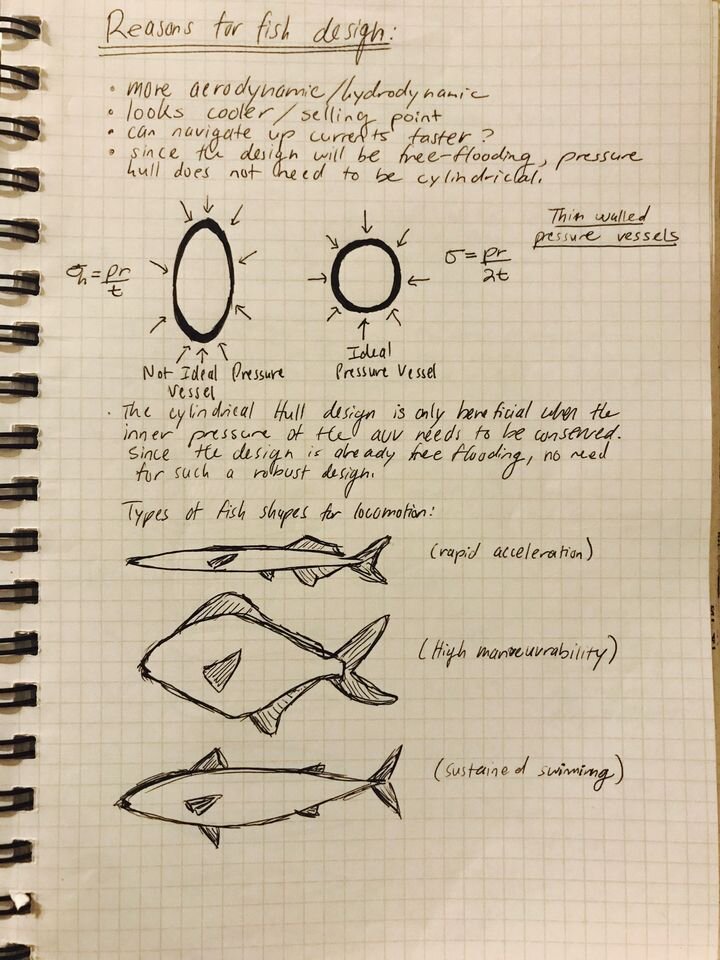 Reasons for fish design:
• more aerodynamic/hydrodynamic
• looks cooler/selling point
• can navigate up currents faster?
• since the design will be free-flooding, pressure
hull does not need to be cylindrical.
Thin walled
pressure vessels
σh = pr/t
σ = pr/2t
Not Ideal Pressure
Vessel
Ideal
Pressure Vessel
• The cylindrical Hull design is only beneficial when the
inner pressure of the auv needs to be conserved.
Since the design is already free flooding, no need
for such a robust design.
Types of fish shapes for locomotion:
(rapid acceleration)
(High manoeuvrability)
(sustained swimming)